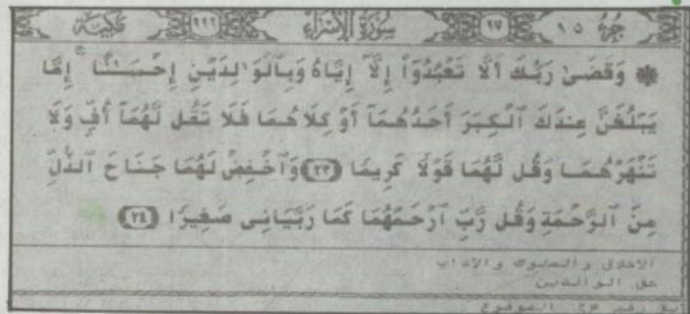 جزء ١٥ ٩٧ سورة الإسراء مكية
۞ وَقَضَىٰ رَبُّكَ أَلَّا تَعْبُدُوٓا۟ إِلَّآ إِيَّاهُ وَبِٱلْوَٰلِدَيْنِ إِحْسَـٰنًا ۚ إِمَّا
يَبْلُغَنَّ عِندَكَ ٱلْكِبَرَ أَحَدُهُمَآ أَوْ كِلَاهُمَا فَلَا تَقُل لَّهُمَآ أُفٍّ وَلَا
تَنْهَرْهُمَا وَقُل لَّهُمَا قَوْلًا كَرِيمًا (٢٣) وَٱخْفِضْ لَهُمَا جَنَاحَ ٱلذُّلِّ
مِنَ ٱلرَّحْمَةِ وَقُل رَّبِّ ٱرْحَمْهُمَا كَمَا رَبَّيَانِى صَغِيرًا (٢٤)
الاخلاق والسلوك والاداب
حق الوالدين
الموضوع